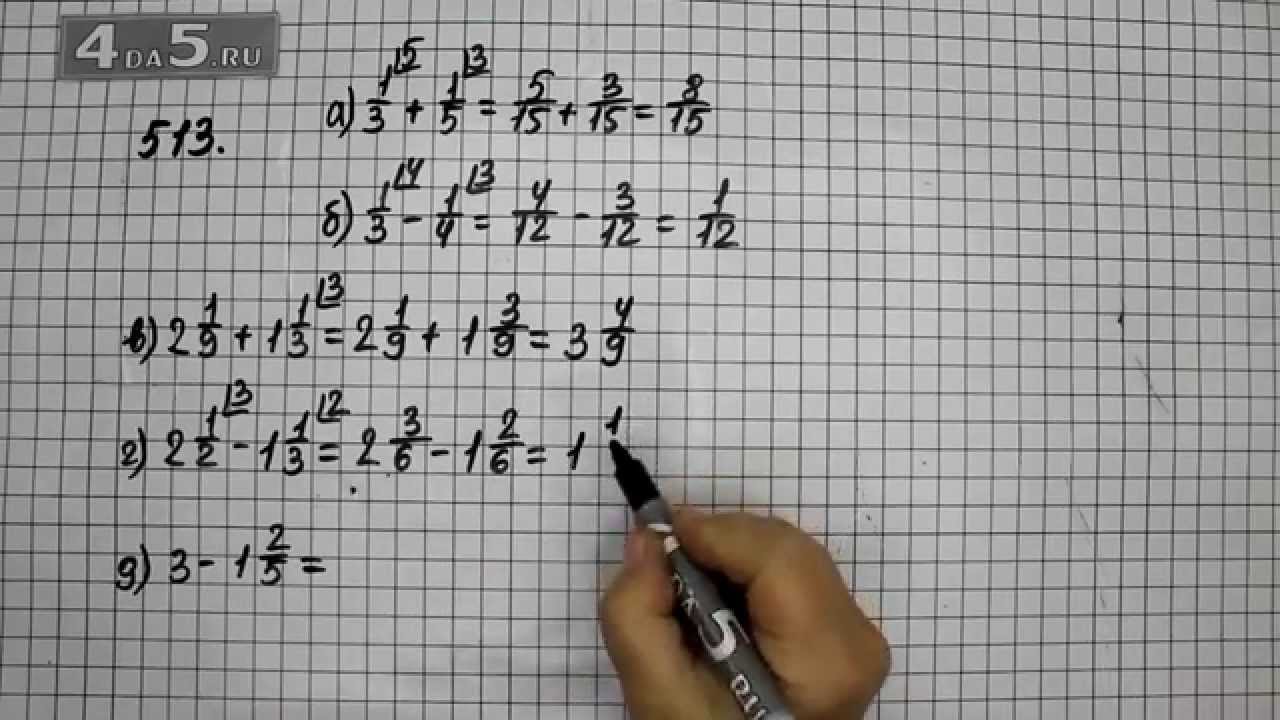 4DA5.RU
513.
а) 1/3 ⌊5 + 1/5 ⌊3 = 5/15 + 3/15 = 8/15
б) 1/3 ⌊4 - 1/4 ⌊3 = 4/12 - 3/12 = 1/12
в) 2 1/9 + 1 1/3 ⌊3 = 2 1/9 + 1 3/9 = 3 4/9
г) 2 1/2 ⌊3 - 1 1/3 ⌊2 = 2 3/6 - 1 2/6 = 1 1
д) 3 - 1 2/5 =